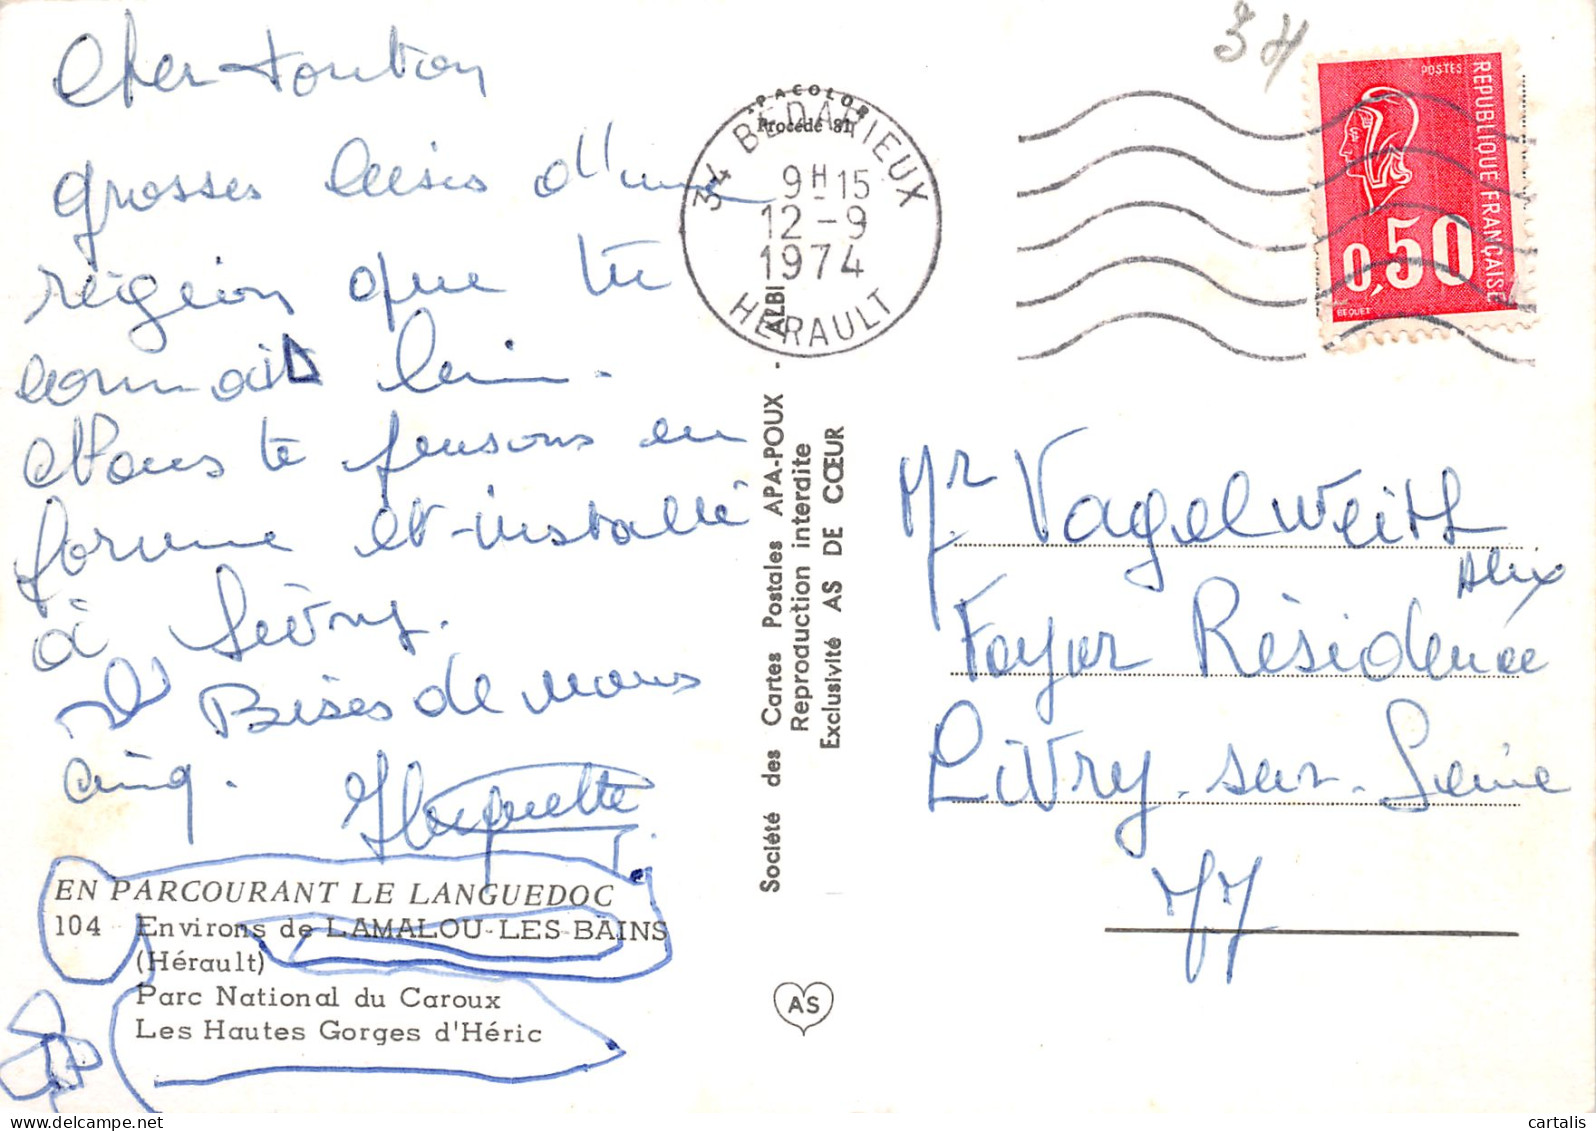 Cher tonton
grosses bises d'une
région que tu
connait bien.
Nous te pensons en
forme et installé
à
Bises de nous
cinq.
Huguette
EN PARCOURANT LE LANGUEDOC
104 Environs de LAMALOU-LES-BAINS
(Hérault)
Parc National du Caroux
Les Hautes Gorges d'Héric
APACOLOR
Procédé 81
34 BEDARIEUX
9H15
12-9
1974
HERAULT
Société des Cartes Postales APA-POUX - ALBI
Reproduction interdite
Exclusivité AS DE CŒUR
AS
34
POSTES
REPUBLIQUE FRANÇAISE
0,50
BEQUET
Mr Vagelweith
Alex
Foyer Résidence
Livry-sur-Seine
77
cartalis